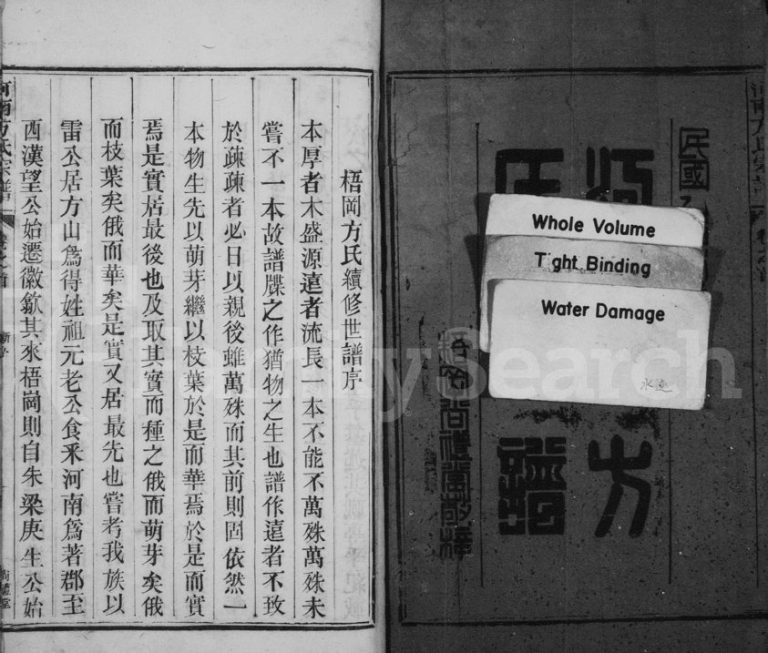 民國
方
譜
Whole Volume
Tight Binding
Water Damage
水迹
梧岡方氏續修世譜序
本厚者木盛源遠者流長一本不能不萬殊萬殊未
嘗不一本故譜牒之作猶物之生也譜作遠者不致
於疎疎者必日以親後雖萬殊而其前則固依然一
本物生先以萌芽繼以枝葉於是而華焉於是而實
焉是實居最後也及取其實而種之俄而萌芽矣俄
而枝葉矣俄而華矣是實又居最先也嘗考我族以
雷公居方山為得姓祖元老公食釆河南為著郡至
西漢望公始遷徽歙其來梧崗則自朱梁庚生公始
河南方氏宗譜
FamilySearch